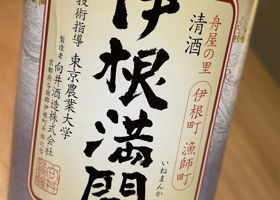 舟屋の里
伊根町
漁師町
清酒
伊根満開
いねまんか
技術指導 東京農業大学
製造者 向井酒造株式会社
京都府与謝郡伊根町平田六七